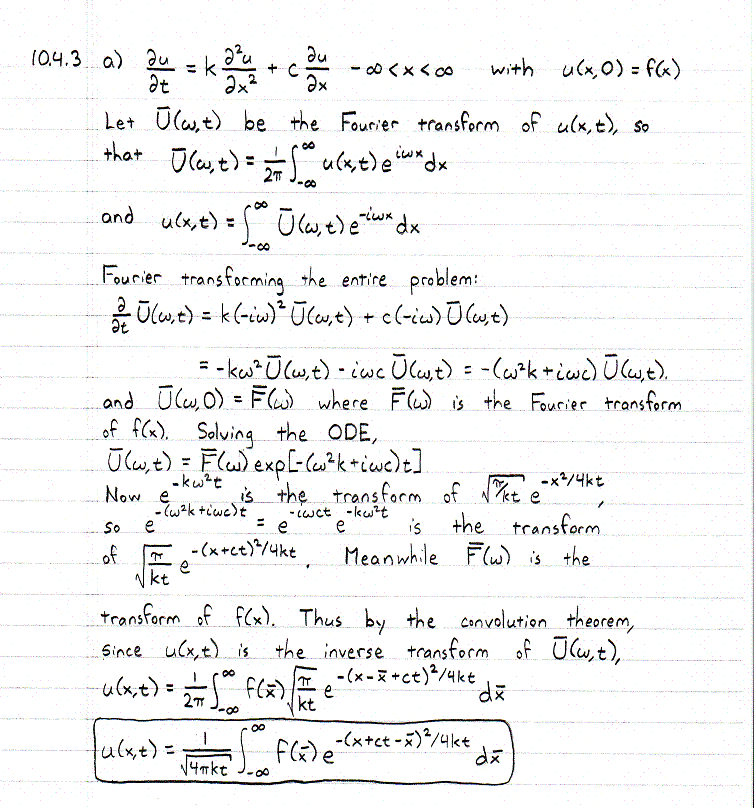 10.4.3 a) ∂u/∂t = k ∂²u/∂x² + c ∂u/∂x -∞<x<∞ with u(x,0) = f(x)
Let Ū(ω,t) be the Fourier transform of u(x,t), so
that Ū(ω,t) = 1/2π ∫_{-∞}^{∞} u(x,t) e^{iωx} dx
and u(x,t) = ∫_{-∞}^{∞} Ū(ω,t) e^{-iωx} dx
Fourier transforming the entire problem:
∂/∂t Ū(ω,t) = k(-iω)² Ū(ω,t) + c(-iω) Ū(ω,t)
= -kω² Ū(ω,t) - iωc Ū(ω,t) = -(ω²k + iωc) Ū(ω,t).
and Ū(ω,0) = F̄(ω) where F̄(ω) is the Fourier transform
of f(x). Solving the ODE,
Ū(ω,t) = F̄(ω) exp[-(ω²k + iωc)t]
Now e^{-kω²t} is the transform of √(π/kt) e^{-x²/4kt},
so e^{-(ω²k+iωc)t} = e^{-iωct} e^{-kω²t} is the transform
of √(π/kt) e^{-(x+ct)²/4kt}. Meanwhile F̄(ω) is the
transform of f(x). Thus by the convolution theorem,
since u(x,t) is the inverse transform of Ū(ω,t),
u(x,t) = 1/2π ∫_{-∞}^{∞} f(x̄) √(π/kt) e^{-(x-x̄+ct)²/4kt} dx̄
u(x,t) = 1/√(4πkt) ∫_{-∞}^{∞} f(x̄) e^{-(x+ct-x̄)²/4kt} dx̄